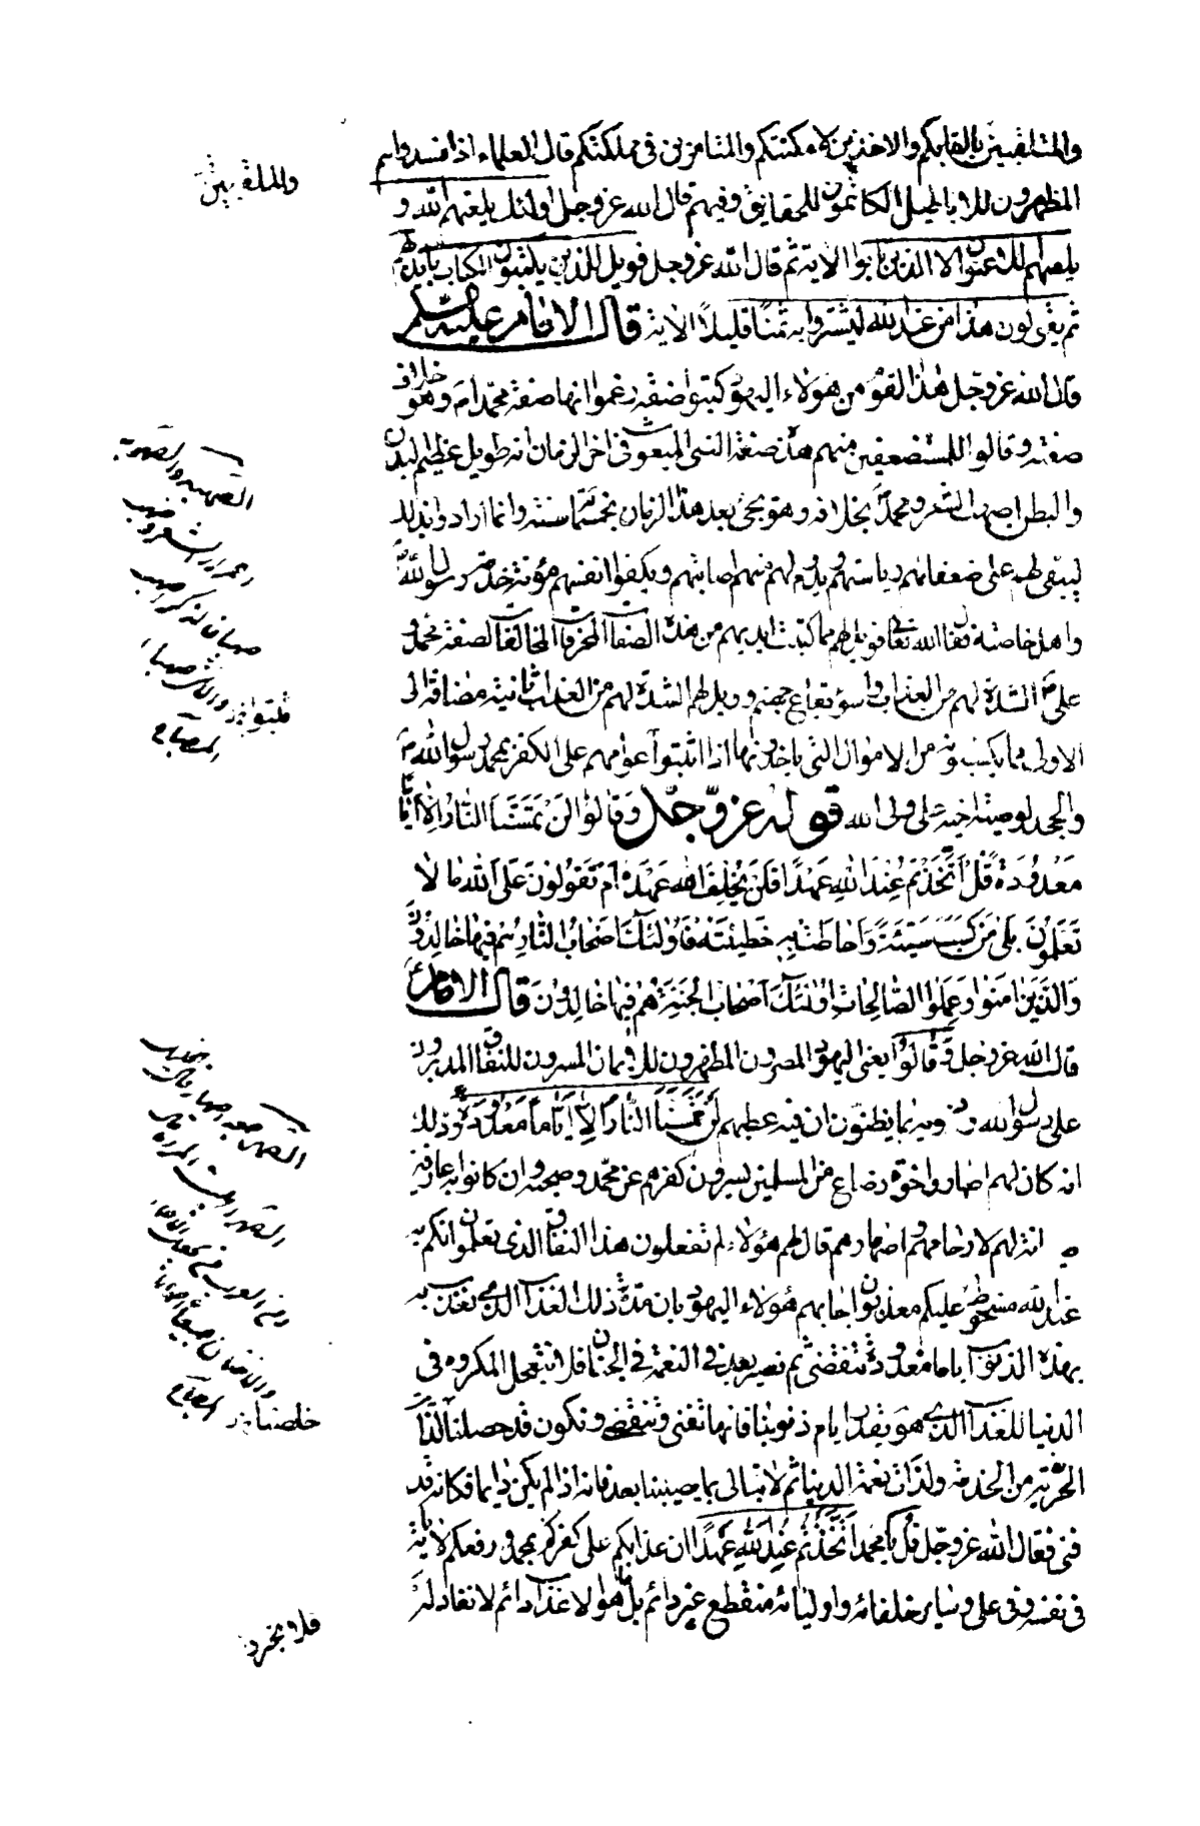 والمتلقبين بالقابكم والاخذين لامكنتكم والمتامرين في مملكتكم قال العلماء اذا فسدوا هم
المظهرون للاباطيل الكاتمون للحقايق وفيهم قال الله عز وجل اولئك يلعنهم الله و
يلعنهم اللاعنون الا الذين تابوا الاية ثم قال الله عز وجل فويل للذين يكتبون الكتاب بايديهم
ثم يقولون هذا من عند الله ليشتروا به ثمنًا قليلًا الاية قال الامام عليه السلم
قال الله عز وجل هذا لقوم من هؤلاء اليهود كتبوا صفة زعموا انها صفة محمد ص وهو خلاف
صفته وقالوا للمستضعفين منهم هذه صفة النبي المبعوث في اخر الزمان انه طويل عظيم البدن
والبطن اصهب الشعر ومحمد بخلافه وهو يجئ بعد هذا الزمان بخمسمائة سنة وانما ارادوا بذلك
ليبقى لهم على ضعفائهم رياستهم ويدوم لهم منهم اصابتهم ويكفوا انفسهم مؤنة خدمة رسول الله
واهل خاصته فقال الله تعالى فويل لهم مما كتبت ايديهم من هذه الصفات المحرفات المخالفات لصفة محمد و
على الشدة لهم من العذاب واسوء بقاع جهنم وويل لهم الشدة لهم من العذاب ثانية مضافة الى
الاولى مما يكسبونه من الاموال التي ياخذونها اذا اثبتوا عوامهم على الكفر بمحمد رسول الله ص
والجحد لوصيته اخيه على ولى الله قوله عز وجل وَقَالُوا لَنْ تَمَسَّنَا النَّارُ اِلاّ اَيَّامًا
مَعْدُودَةً قُلْ اَتَّخَذْتُمْ عِنْدَ اللهِ عَهْدًا فَلَنْ يُخْلِفَ اللهُ عَهْدَهُ اَمْ تَقُولُونَ عَلَى اللهِ مَا لا
تَعْلَمُونَ بَلى مَنْ كَسَبَ سَيِّئَةً وَاَحَاطَتْ بِهِ خَطِيئَتُهُ فَاُولئِكَ اَصْحَابُ النَّارِ هُمْ فِيهَا خَالِدُونَ
وَالَّذِينَ امَنُوا وَعَمِلُوا الصَّالِحَاتِ اُولئِكَ اَصْحَابُ الجَنَّةِ هُمْ فِيهَا خَالِدُونَ قال الامام ع
قال الله عز وجل وَقَالُوا يعني اليهود المصرون المظهرون للايمان المسرون للنفاق المدبرون
على رسول الله وذويه بما يظنون ان فيه عطبهم لَنْ تَمَسَّنَا النَّارُ اِلاّ اَيَّامًا مَعْدُودَة وذلك
انه كان لهم اصهار واخوة رضاع من المسلمين يسرون كفرهم عن محمد وصحبه وان كانوا به عارفين
صيانة لهم لارحامهم واصهارهم قال لهم هؤلاء لم تفعلون هذا النفاق الذي تعلمون انكم به
عند الله مسخوط عليكم معذبون اجابهم هؤلاء اليهود بان مدة ذلك العذاب الذي نعذب به
بهذه الذنوب اياما معدودة تنقضي ثم نصير بعد في النعمة في الجنان فلا نتعجل المكروه في
الدنيا للعذاب الذي هو بقدر ايام ذنوبنا فانها تفنى وتنقضي ونكون قد حصلنا لذات
الحرية من الخدمة ولذات نعمة الدنيا ثم لا نبالى بما يصيبنا بعد فانه اذا لم يكن دايما فكانه قد
فنى فقال الله عز وجل قُلْ يا محمد اَتَّخَذْتُمْ عِنْدَ اللهِ عَهْدًا ان عذابكم على كفركم بمحمد ورفعكم لاياته
في نفسه وفي على وسائر خلفائه واوليائه منقطع غير دائم بل ما هو الا عذاب دائم لا نفاد له
والملقبين
الصهبة والصهوبة
احمرار الشعر وصهب
صهبا فالذكر اصهب
والانثى صهباء
المصباح
الصهر جمعه اصهار قال الخليل
الصهر اهل بيت المراة قال
ومن العرب من يجعل الاحماء
والاختان جميعًا اصهارًا
خلصنا نخ المصباح
فلا تجترؤا